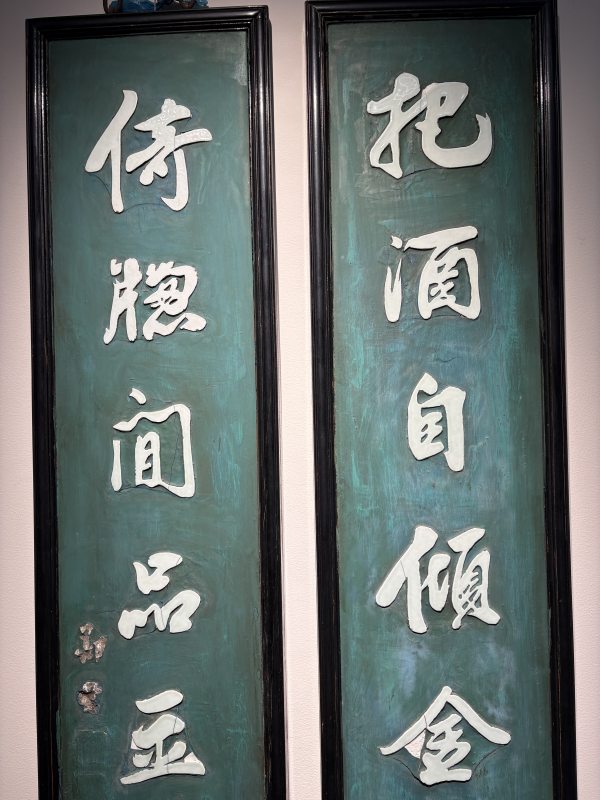 把酒自傾金
倚牕間品玉